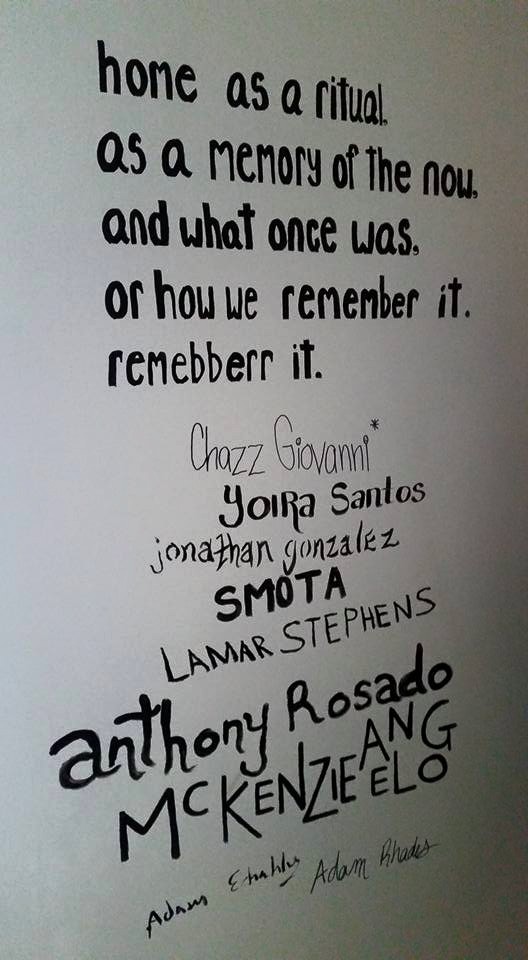 home as a ritual.
as a memory of the now.
and what once was.
or how we remember it.
remebberr it.
Chazz Giovanni*
Yoira Santos
jonathan gonzalez
SMOTA
LAMAR STEPHENS
anthony Rosado
McKENZIE ANGELO
Adam Adam Rhades